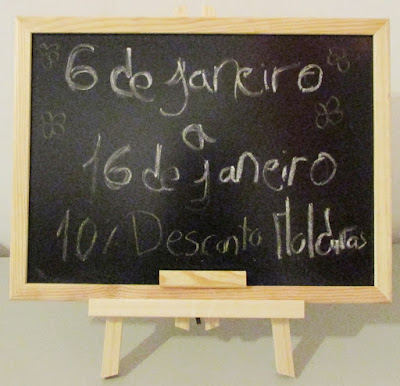 6 de janeiro
a
16 de janeiro
10% Desconto Molduras